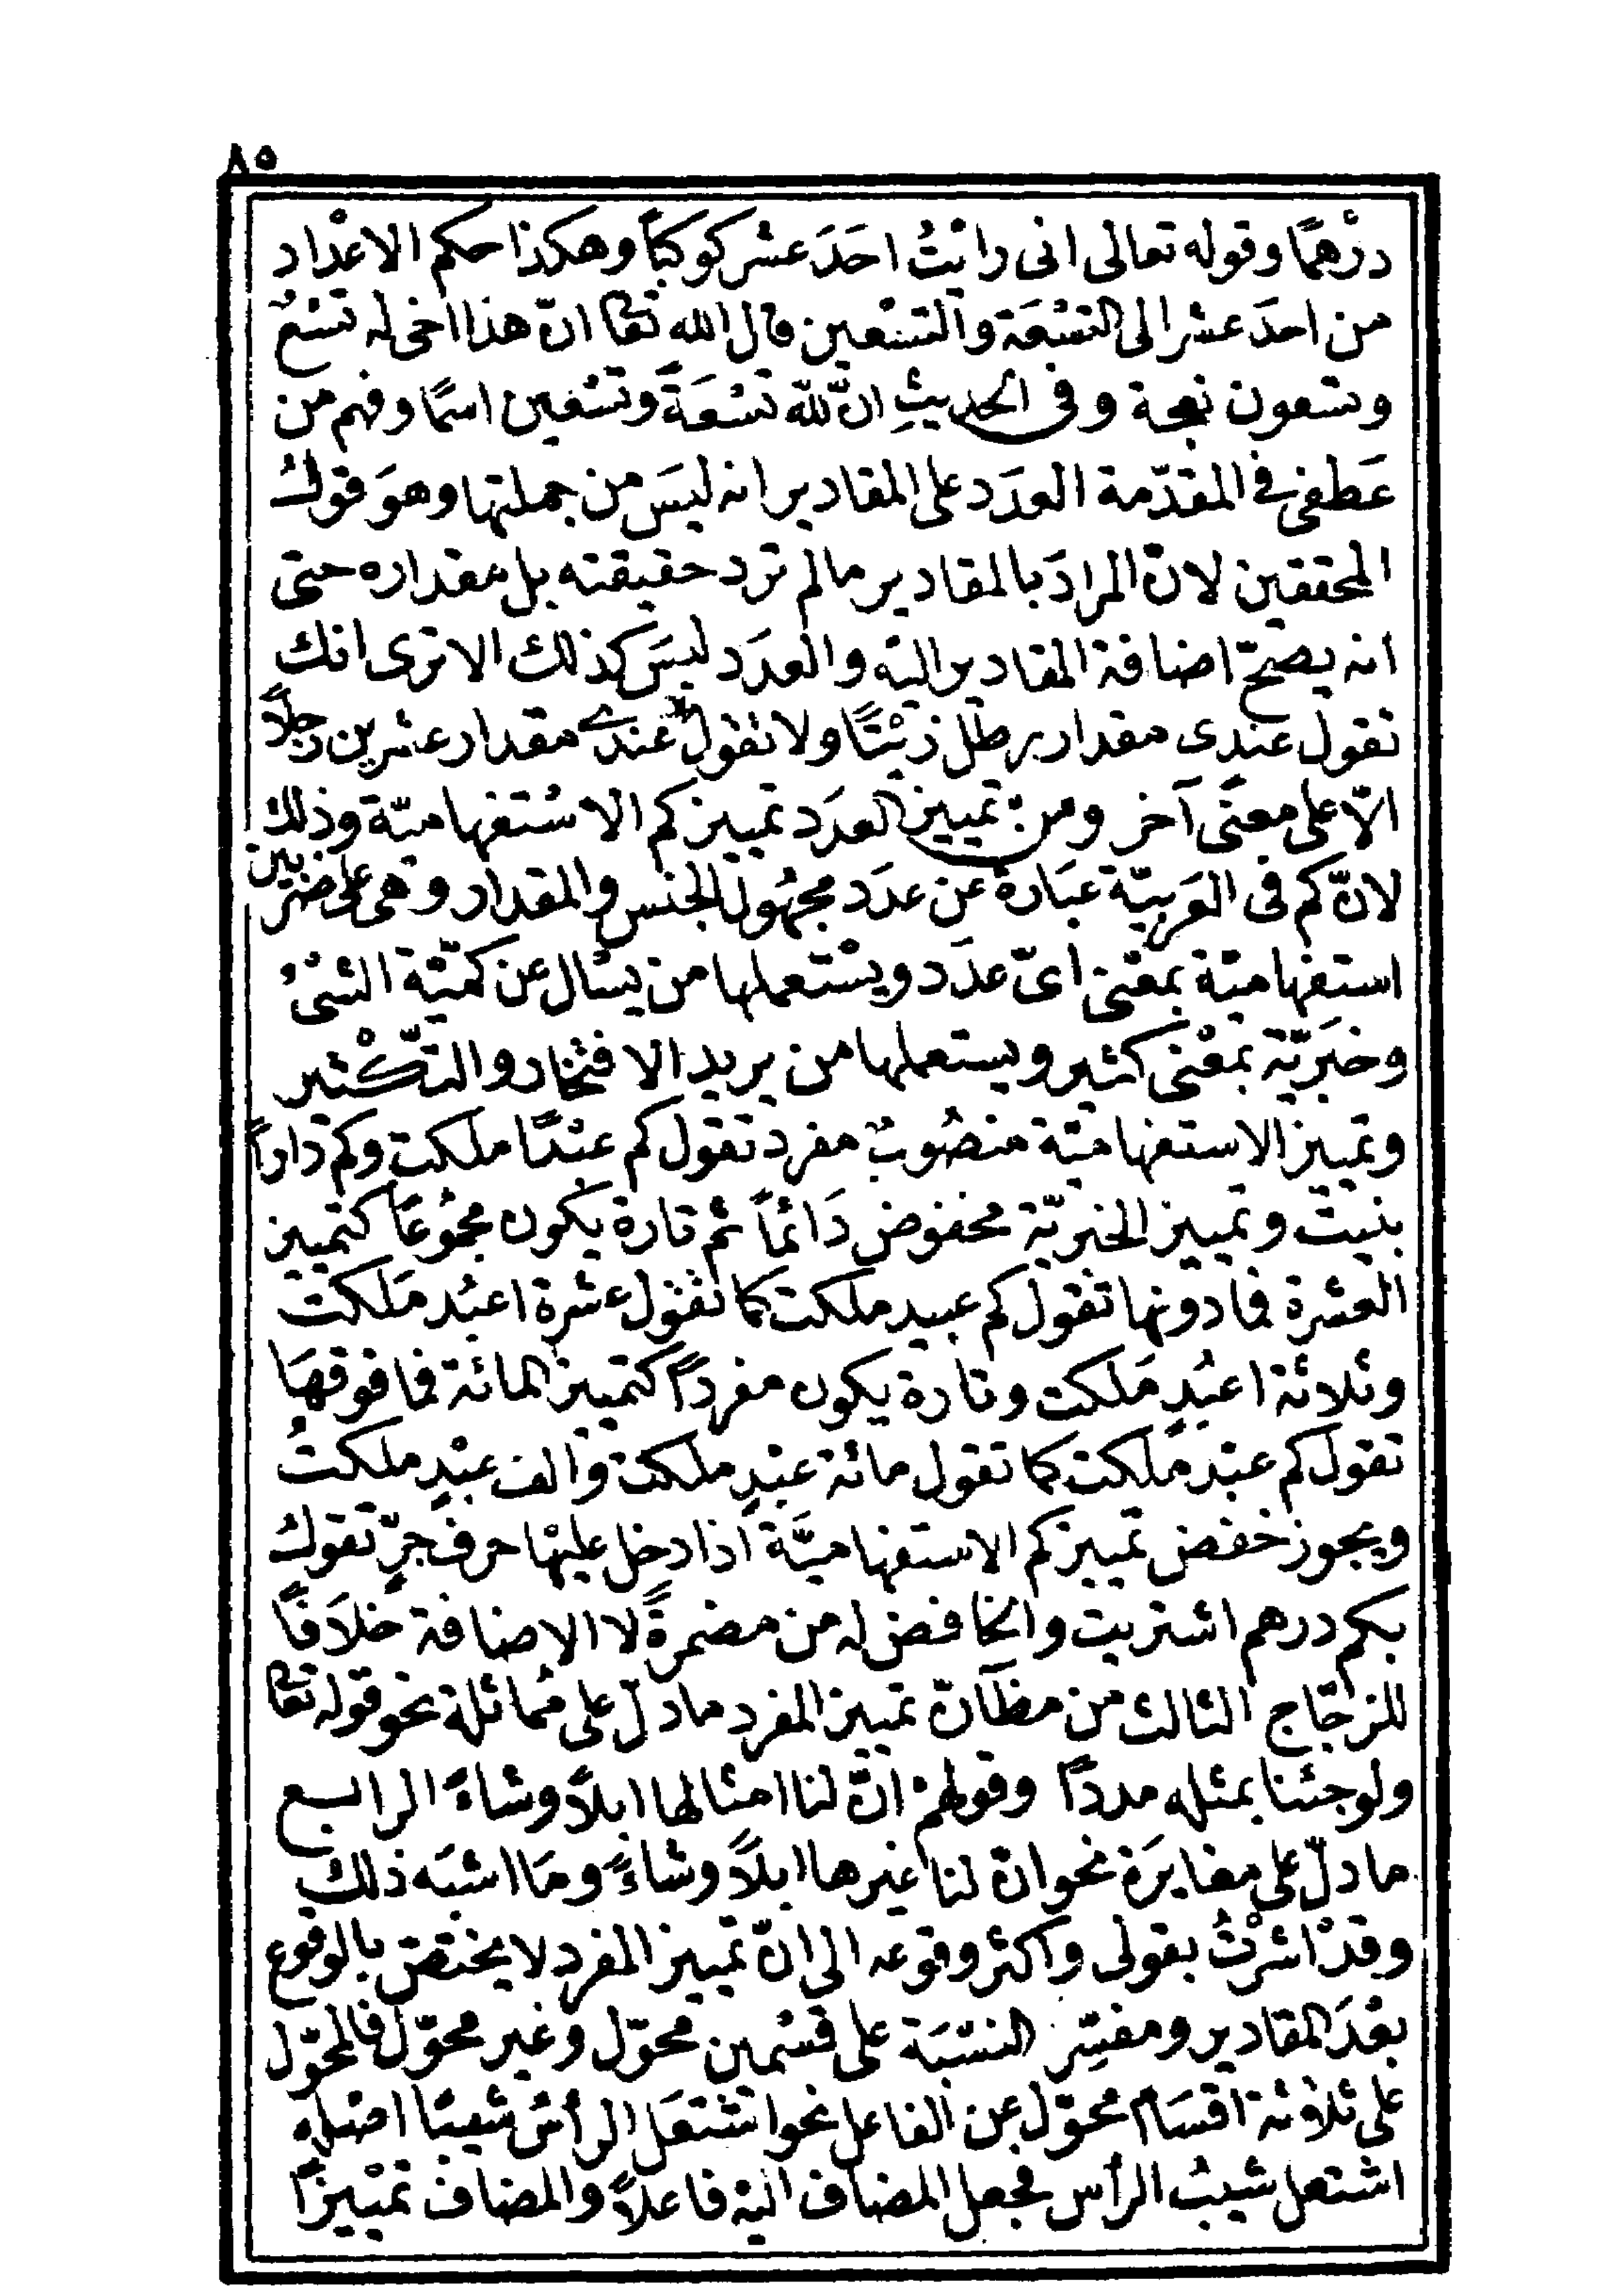 ٨٥
درْهمًا وقوله تعالى انى رايْتُ احَدَ عشر كوكبًا وهكذا حكم الاعْداد
من احدَ عشر الى التسْعَة والتسْعين قال الله تعا انّ هذا اخى له تسْعٌ
وتسعون نعجة وفى الحديثِ انّ لله تسْعَةً وتسْعين اسمًا وفهم من
عَطفى في المقدّمة العدَد على المقادير انه ليسَ من جملتها وهوَ قول
المحققين لانّ المرادَ بالمقادير مالم ترد حقيقته بل مقداره حتى
انه يصحّ اضافة المقادير اليْه والعدَد ليسَ كذلك الا ترى انك
تقول عندى مقدار رطل زيْتًا ولا تقول عندى مقدار عشرين رجلاً
الّا على معنًى آخر ومن تمييز العدَد تمييز كم الاسْتفهاميّة وذلك
لانّ كم فى العَربيّة عبَارة عن عدَد مجهُول الجنس والمقدار وهى على ضربين
استفهاميّة بمعْنى اىّ عدَد ويسْتعملها من يسْال عن كمّيّة الشىْء
وخبَريّة بمعْنى كثير ويستعملها من يريد الافتخار والتّكْثير
وتمييز الاستفهاميّة منصُوبٌ مفرد تقول كم عبْدًا ملكت وكم دارًا
بنيت وتمييز الخبريّة مخفوض دَائمًا ثم تارة يكون مجمُوعًا كتمييز
العشرة فما دونها تقول كم عبيد ملكت كما تقول عشرة اعبُد مَلكت
وثلاثة اعبُدٍ مَلكت وتارة يكون مفردًا كتمييز المائة فما فوقهَا
تقول كم عبْدٍ مَلكت كما تقول مائة عبْدٍ ملكت والف عبْدٍ ملكتُ
ويجوز خفض تمييز كم الاستفهاميَّة اذا دخل عليْها حرف جرّ تقول
بكم درهم اشتريت والخافض له من مضمرةً لا الاضافة خلاَفًا
للزجّاج الثالث من مظآنّ تمييز المفرد مادلّ على مُماثلة نحو قوله تعا
ولو جئنا بمثله مددًا وقولهمْ انّ لنا امثالها ابلاً وشاءً الرابع
ما دلّ على مغايَرَة نحو انّ لنا غيرها ابلاً وشاءً ومَا اشبَه ذلك
وقدْ اشرْتُ بقولى واكثر وقوعه الى انّ تمييز المفرد لا يختصّ بالوقوع
بعْدَ المقادير ومفسّر النسْبَة على قسْمين محوّل وغير محوّل فالمحوّل
على ثلاثة اقسَام محوّل عن الفاعل نحو اشتعَل الرأسُ شيبًا اصْله
اشتعل شيبُ الرأس فجعل المضاف اليْه فاعلاً والمضاف تمْييزًا